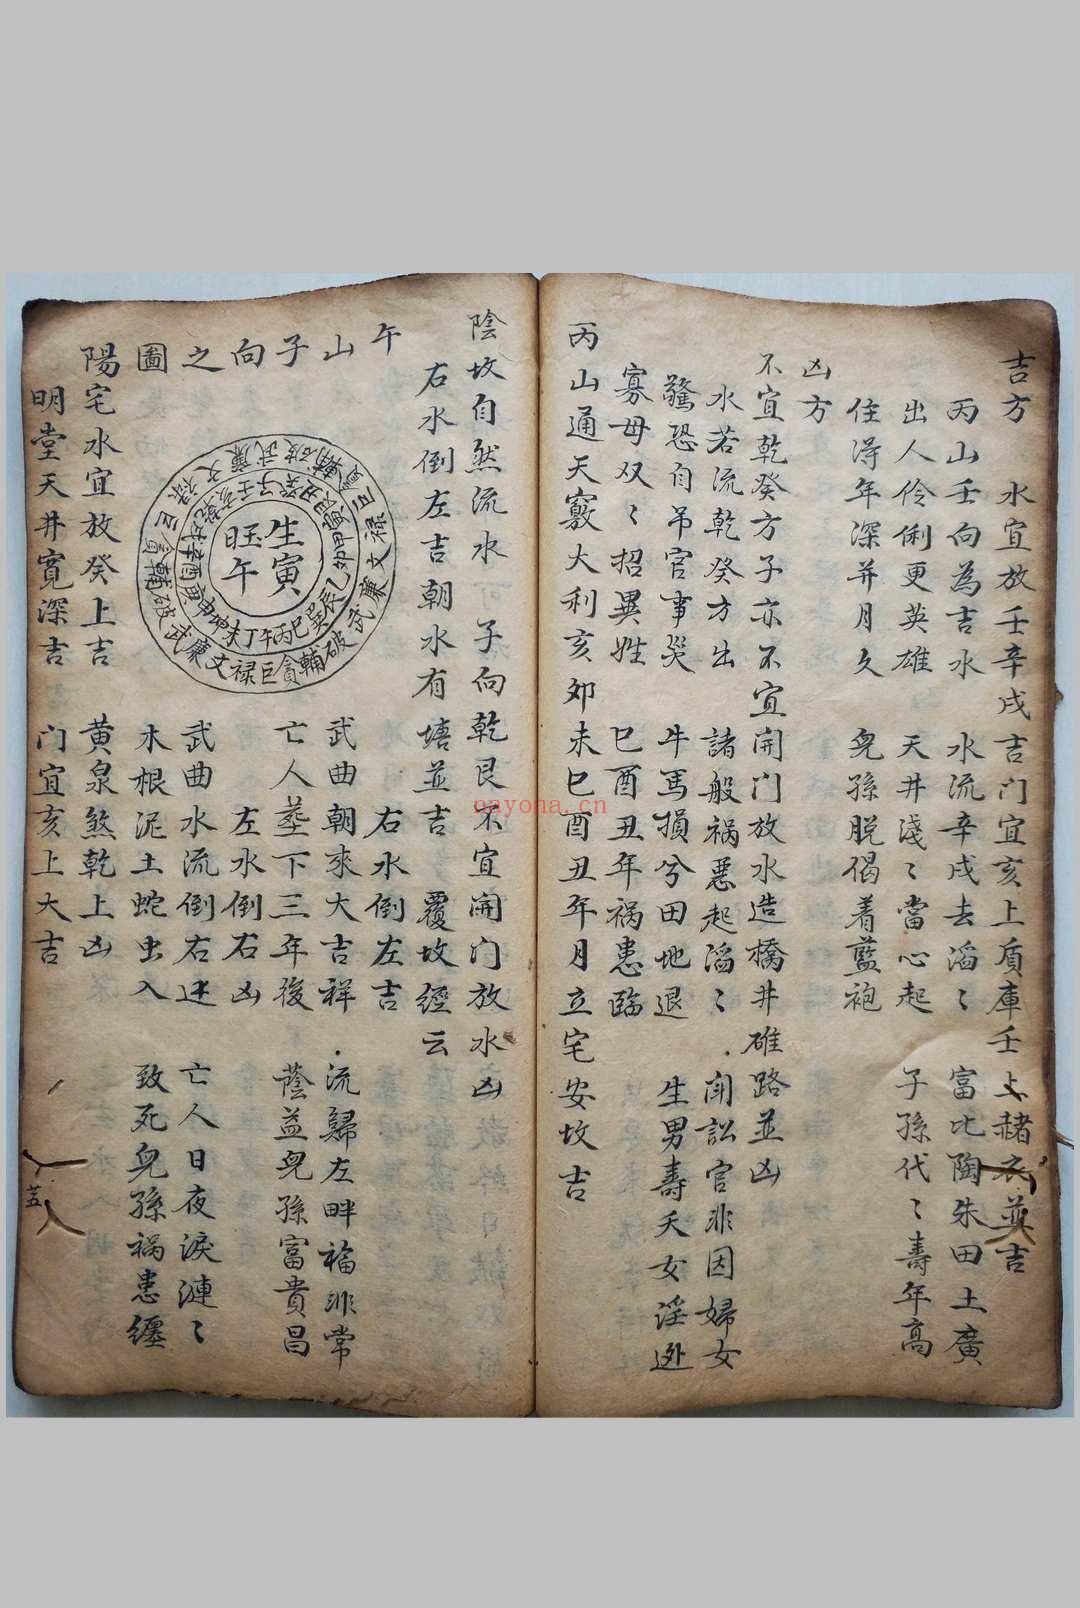 吉方 水宜放壬辛戌吉门宜亥上盾庫壬上赭衣並吉
丙山壬向為吉水 水流辛戌去滔〻 富比陶朱田土廣
出人伶俐更英雄 天井淺〻當心起 子孫代〻壽年高
住得年深并月久 兒孫脱偈着藍袍
凶方
不宜乾癸方子亦不宜開门放水造橋井碓路並凶
水若流乾癸方出 諸般禍惡起滔〻 閗訟官非因婦女
驚恐自吊官事災 牛馬損兮田地退 生男壽夭女淫逊
寡母双〻招異姓 巳酉丑年禍患臨
丙山通天竅大利亥卯未巳酉丑年月立宅安坟吉
陰坟自然流水可子向乾艮不宜開门放水凶
右水倒左吉朝水有塘並吉 覆坟經云
午山子向之圖
右水倒左吉
武曲朝來大吉祥 流歸左畔福非常
亡人塟下三年後 蔭益兒孫富貴昌
左水倒右凶
武曲水流倒右迷 亡人日夜淚漣〻
木根泥土蛇虫入 致死兒孫禍患纏
陽宅水宜放癸上吉 黄泉煞乾上凶
明堂天井寬深吉 门宜亥上大吉
生寅
旺午
壬子癸丑艮寅甲卯乙辰巽巳丙午丁未坤申庚酉辛戌乾亥
破武廉文禄巨貪輔破武廉文禄巨貪輔破武廉文禄巨貪輔
nayona.cn